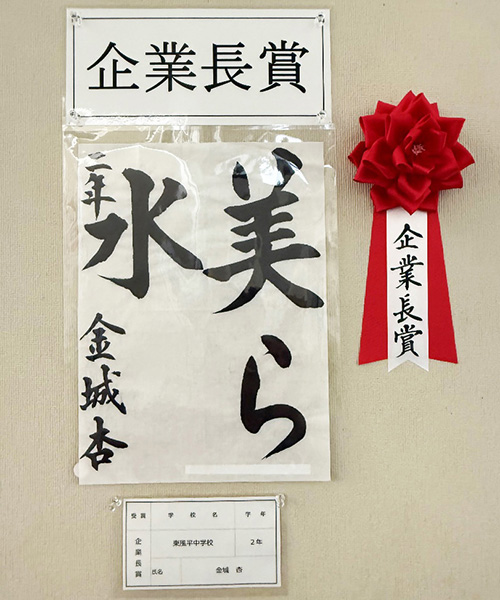 企業長賞
美ら
水
二年 金城杏
企業長賞
受賞 学校名 学年
企業長賞 東風平中学校 2年
氏名 金城 杏